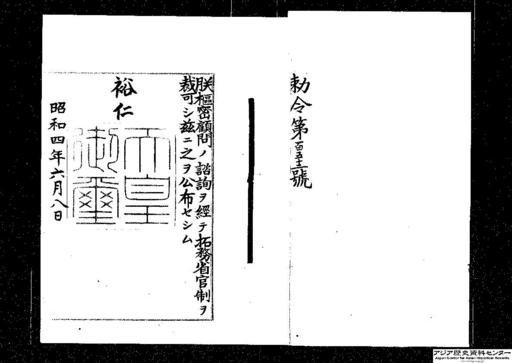 勅令第百五十二號
朕樞密顧問ノ諮詢ヲ經テ拓務省官制ヲ
裁可シ茲ニ之ヲ公布セシム
裕仁
天皇
御璽
昭和四年六月八日
アジア歴史資料センター
Japan Center for Asian Historical Records